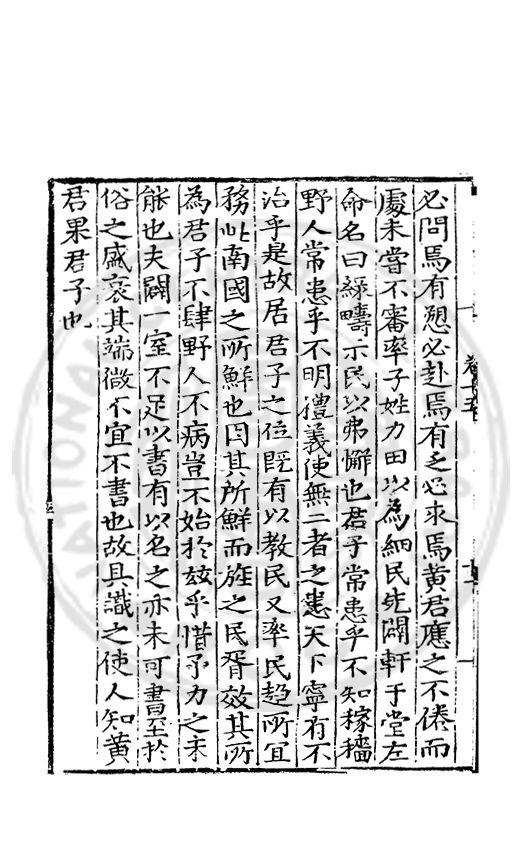 必問焉有愬必赴焉有乏必求焉黄君應之不倦而
處未嘗不審率子姓力田以為細民先闢軒于堂左
命名曰綠疇示民以弗懈也君子常患乎不知稼穡
野人常患乎不明禮義使無二者之患天下寧有不
治乎是故居君子之位既有以教民又率民趍所宜
務此南國之所鮮也因其所鮮而旌之民胥效其所
為君子不肆野人不病豈不始於兹乎惜予力之未
能也夫闢一室不足以書有以名之亦未可書至於
俗之盛衰其端微不宜不書也故具識之使人知黄
君果君子也